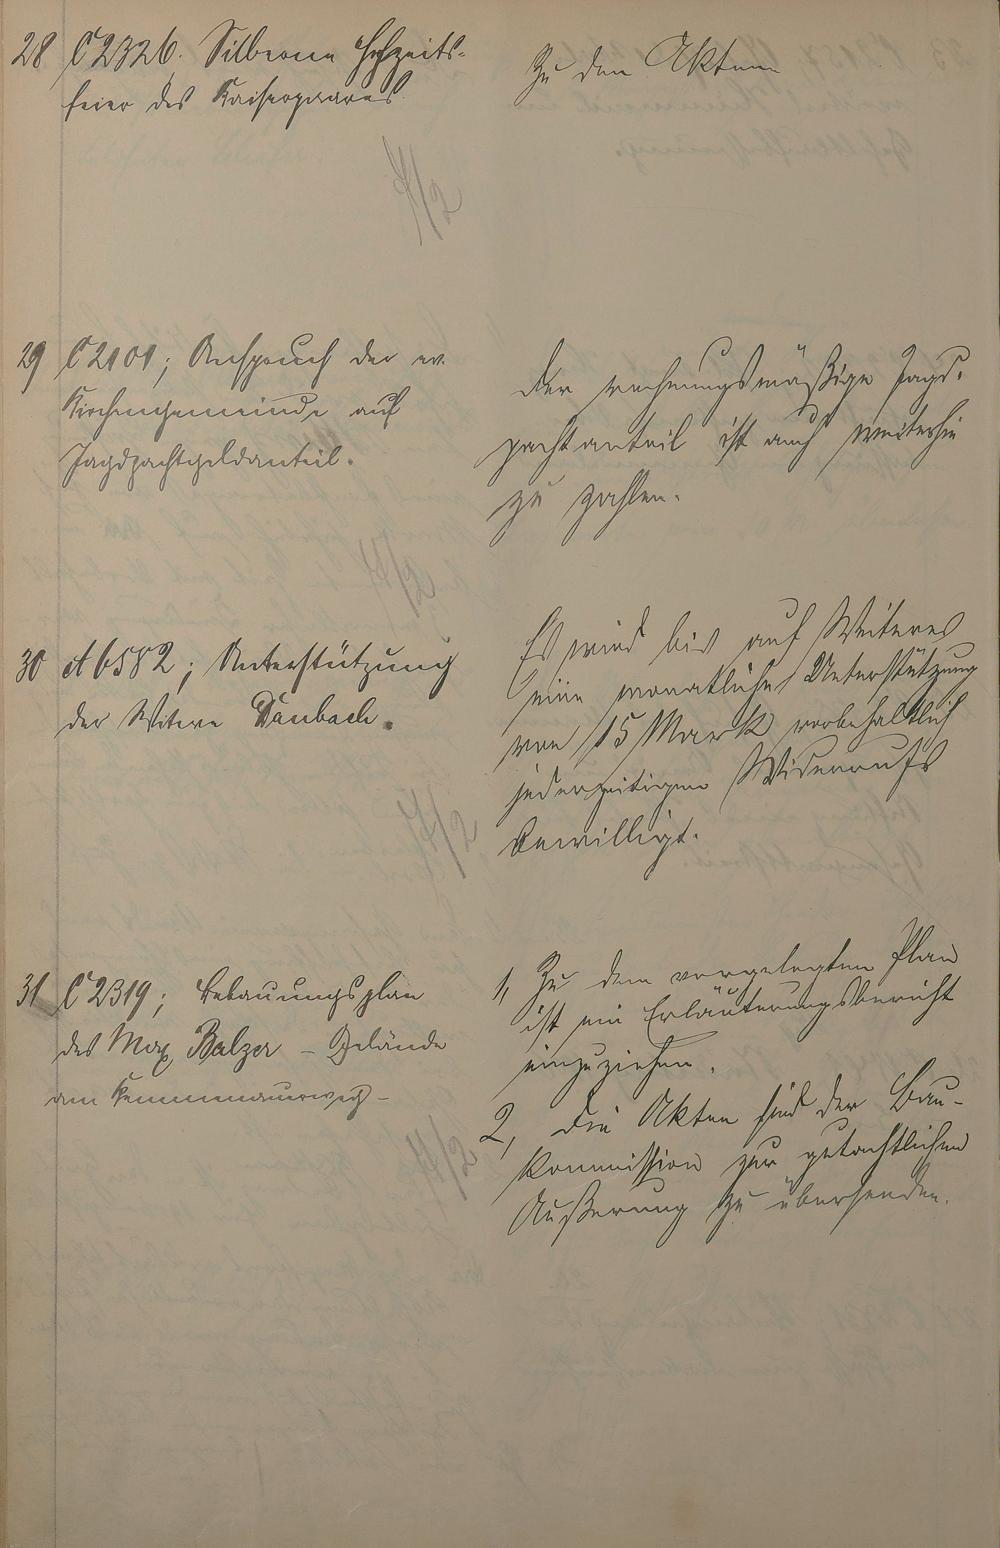 28 C 2326. Silberne Hochzeits-
feier des Kaiserpaares.
Zu den Akten
29 C 2101; Anspruch der ev.
Kirchengemeinde auf
Jagdpachtgeldanteil.
Der rechnungsmäßige Jagd-
pachtanteil ist auch weiterhin
zu zahlen.
30 A 6582; Unterstützung
der Witwe Daubach.
Es wird bis auf Weiteres
eine monatliche Unterstützung
von 15 Mark vorbehaltlich
jederzeitigen Widerrufs
bewilligt.
31 C 2319; Bebauungsplan
des Max Balzer - Gelände
am
1, Zu dem vorgelegten Plan
ist ein Erläuterungsbericht
einzuziehen.
2, Die Akten sind der Bau-
kommission zur gutachtlichen
Äußerung zu übersenden.